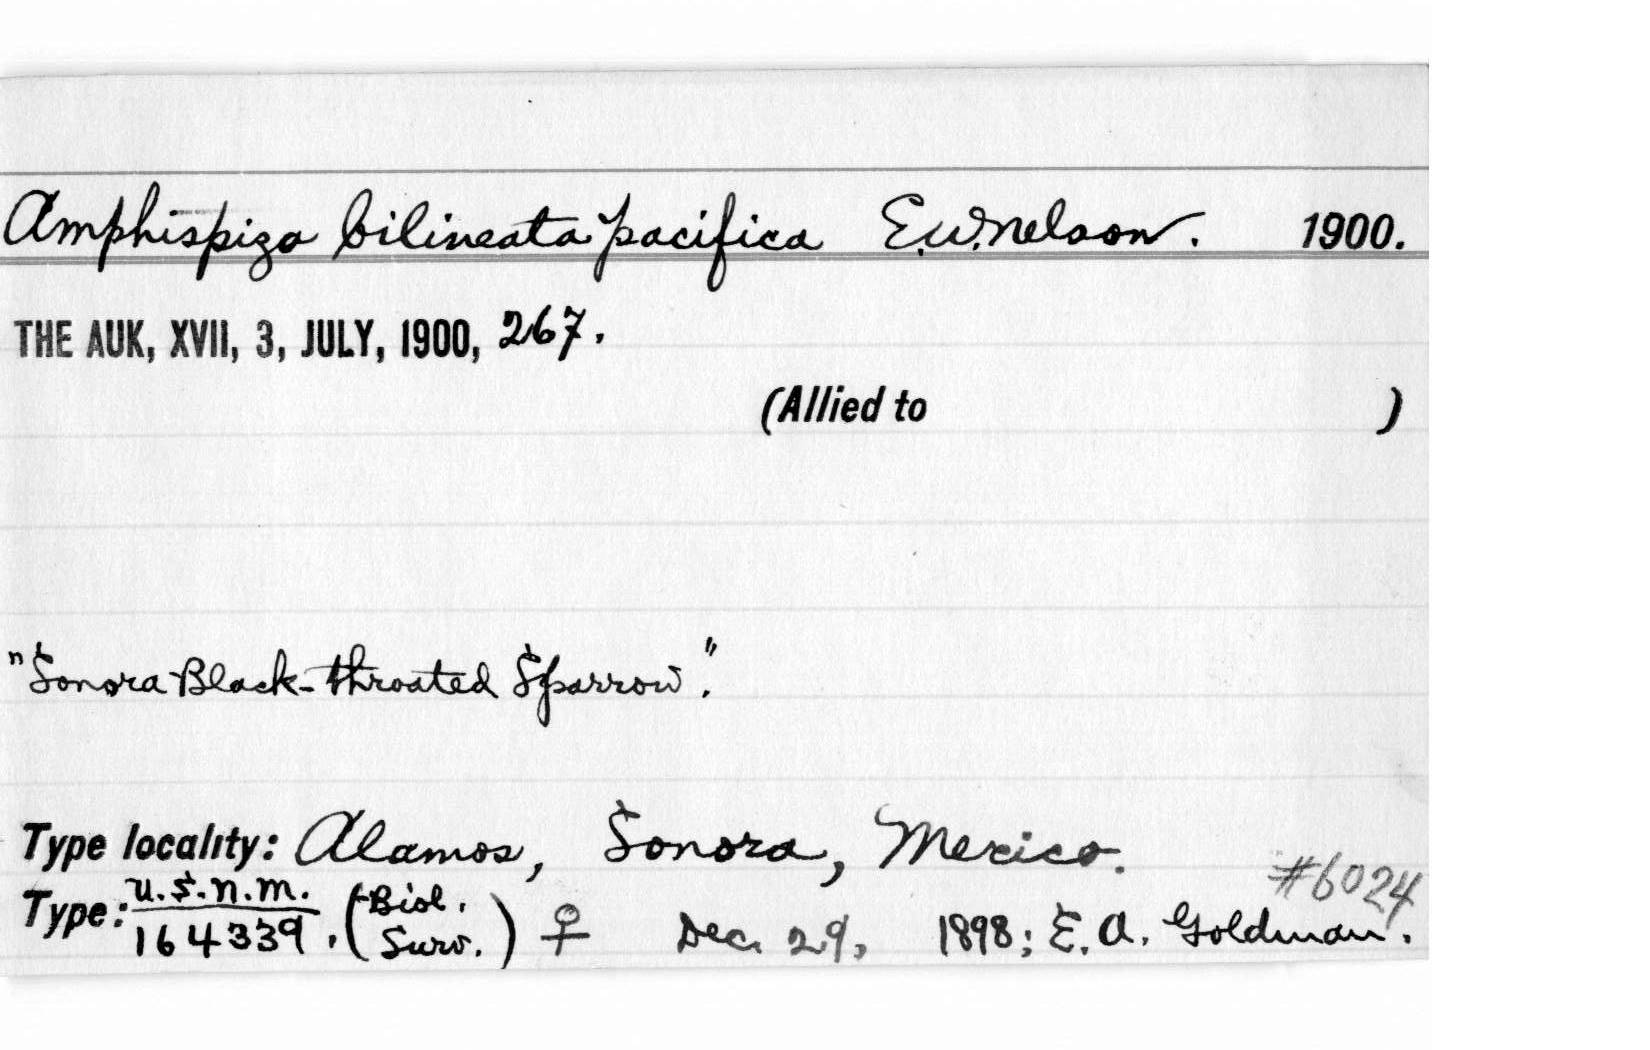 Amphispiza bilineata pacifica E.W. Nelson. 1900.
THE AUK, XVII, 3, JULY, 1900, 267.
(Allied to )
"Sonora Black-throated Sparrow."
Type locality: Alamos, Sonora, Mexico.
#6024
Type: U.S.N.M. 164339. (Biol. Surv.) ♀ Dec. 29, 1898; E. A. Goldman.